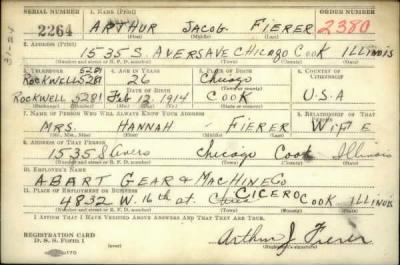 SERIAL NUMBER 1. NAME (Print) ORDER NUMBER
2264 ARTHUR JACOB FIERER 2380
(First) (Middle) (Last)
2. ADDRESS (Print)
1535 S. AVERS AVE CHICAGO COOK ILLINOIS
(Number and street or R. F. D. number) (Town) (County) (State)
3. TELEPHONE 4. AGE IN YEARS 5. PLACE OF BIRTH 6. COUNTRY OF CITIZENSHIP
5281
ROCKWELL 5281 26 Chicago
DATE OF BIRTH (Town or county)
ROCKWELL 5281 Feb 12 1914 COOK U.S.A
(Exchange) (No.) (Mo.) (Day) (Yr.) (State or country)
7. NAME OF PERSON WHO WILL ALWAYS KNOW YOUR ADDRESS 8. RELATIONSHIP OF THAT PERSON
MRS HANNAH FIERER WIFE
(Mr., Mrs., Miss) (First) (Middle) (Last)
9. ADDRESS OF THAT PERSON
1535 S Avers Chicago Cook Illinois
(Number and street or R. F. D. number) (Town) (County) (State)
10. EMPLOYER'S NAME
ABART GEAR & MACHINE CO
11. PLACE OF EMPLOYMENT OR BUSINESS
4832 W. 16th St. CICERO COOK ILLINOIS
(Number and street or R. F. D. number) (Town) (County) (State)
I AFFIRM THAT I HAVE VERIFIED ABOVE ANSWERS AND THAT THEY ARE TRUE.
REGISTRATION CARD
D. S. S. Form 1 Arthur J Fierer
(Registrant's signature)